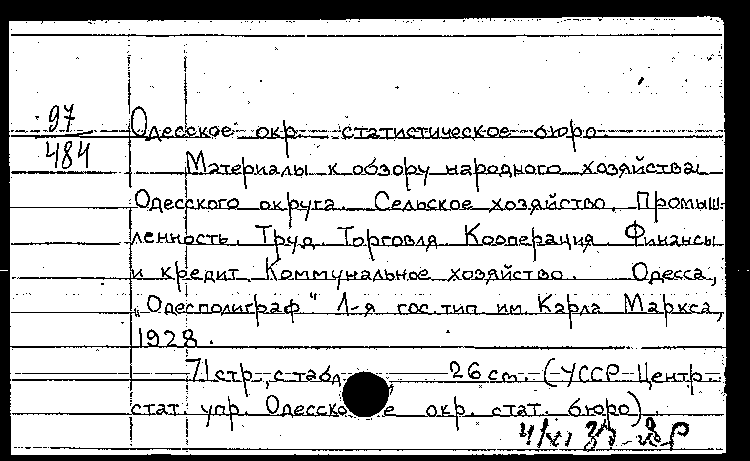 97
484
Одесское окр. статистическое бюро.
Материалы к обзору народного хозяйства
Одесского округа. Сельское хозяйство. Промыш-
ленность. Труд. Торговля. Кооперация. Финансы
и кредит. Коммунальное хозяйство. Одесса,
"Одесполиграф" 1-я гос. тип. им. Карла Маркса,
1928.
71 стр., с табл. 26 cm. (УССР-Центр.
стат. упр. Одесское окр. стат. бюро).